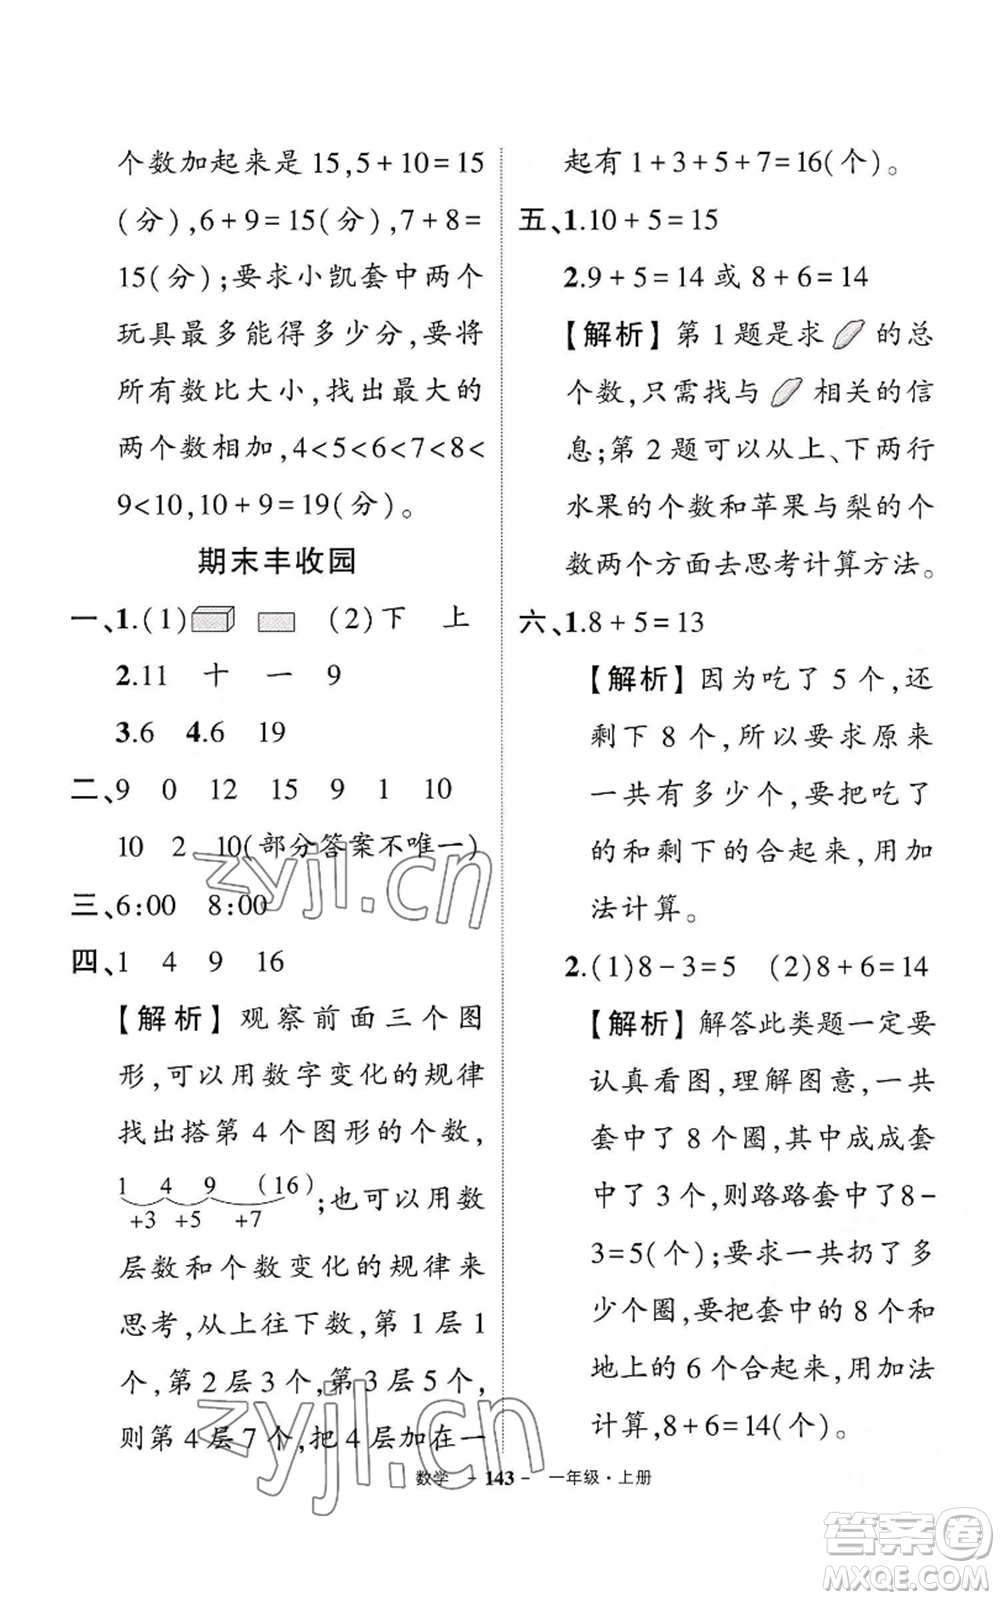 个数加起来是15,5+10=15
(分),6+9=15(分),7+8=
15(分);要求小凯套中两个
玩具最多能得多少分,要将
所有数比大小,找出最大的
两个数相加,4<5<6<7<8<
9<10,10+9=19(分)。
期末丰收园
一、1.(1) (2)下 上
2.11 十 一 9
3.6 4.6 19
二、9 0 12 15 9 1 10
10 2 10(部分答案不唯一)
三、6:00 8:00
四、1 4 9 16
【解析】观察前面三个图
形,可以用数字变化的规律
找出搭第4个图形的个数,
1 4 9 (16);也可以用数
+3 +5 +7
层数和个数变化的规律来
思考,从上往下数,第1层1
个,第2层3个,第3层5个,
则第4层7个,把4层加在一
起有1+3+5+7=16(个)。
五、1.10+5=15
2.9+5=14或8+6=14
【解析】第1题是求 的总
个数,只需找与 相关的信
息;第2题可以从上、下两行
水果的个数和苹果与梨的个
数两个方面去思考计算方法。
六、1.8+5=13
【解析】因为吃了5个,还
剩下8个,所以要求原来
一共有多少个,要把吃了
的和剩下的合起来,用加
法计算。
2.(1)8-3=5 (2)8+6=14
【解析】解答此类题一定要
认真看图,理解图意,一共
套中了8个圈,其中成成套
中了3个,则路路套中了8-
3=5(个);要求一共扔了多
少个圈,要把套中的8个和
地上的6个合起来,用加法
计算,8+6=14(个)。
数学 -143- 一年级·上册
zyjl.cn
zyjl.cn
答案圈
MXQE.COM